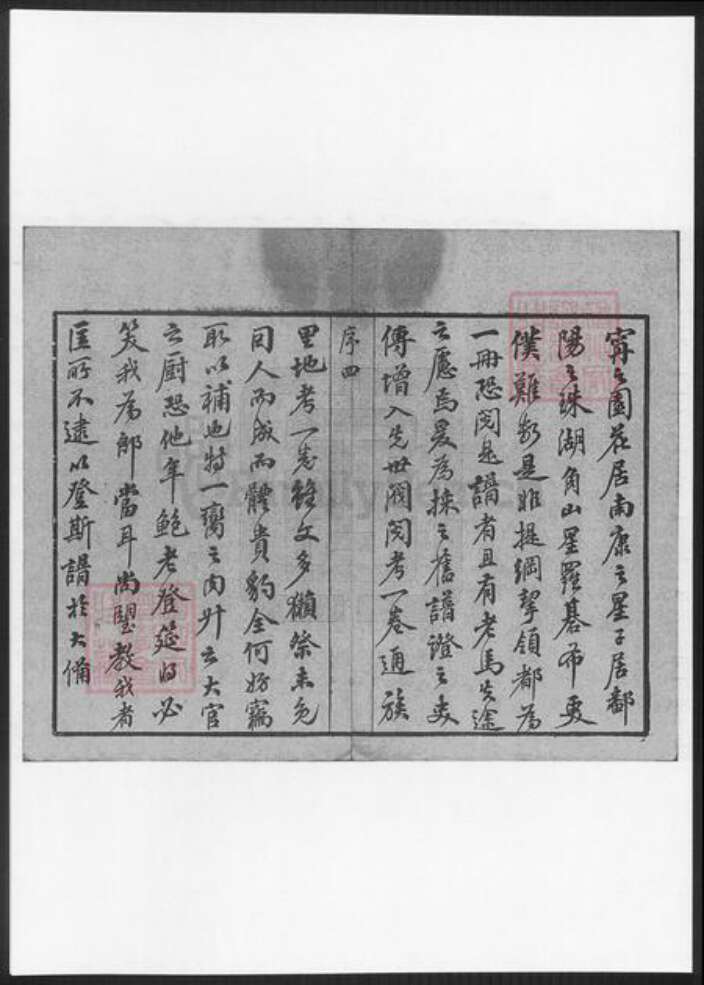 甯之園花居南康之星子居鄱
陽之珠湖角山星羅碁布更
僕難數是非提綱挈領都為
一冊恐閱是譜者且有老馬失途
之慮焉爰為採之舊譜證之史
傳增入先世閥閱考一卷通族
序四
里地考一卷雖文多獺祭未免
因人而成而體貴豹全何妨竊
取以補也特一臠之肉升之大官
之厨恐他年鮑老登筵必
笑我為郎當耳尚望教我者
匡所不逮以登斯譜於大備